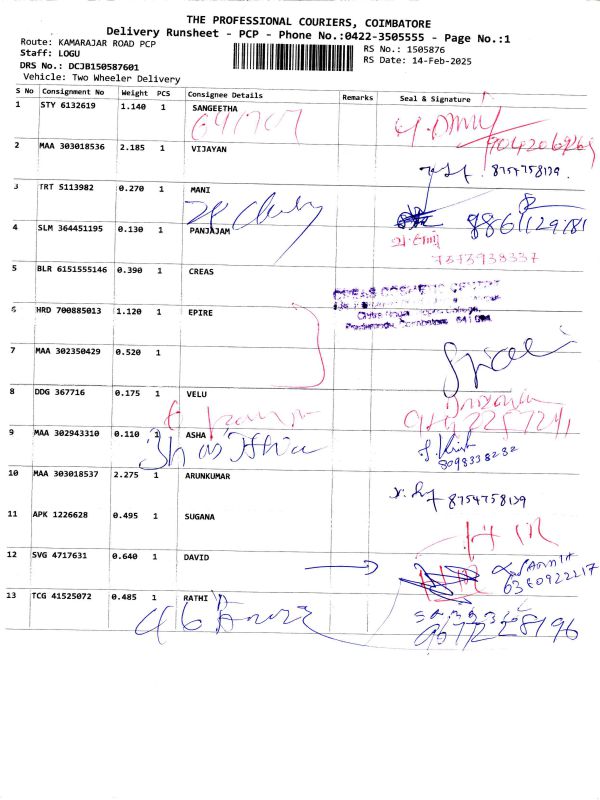 THE PROFESSIONAL COURIERS, COIMBATORE
Delivery Runsheet - PCP - Phone No.:0422-3505555 - Page No.:1
Route: KAMARAJAR ROAD PCP
RS No.: 1505876
Staff: LOGU
RS Date: 14-Feb-2025
DRS No.: DCJB150587601
Vehicle: Two Wheeler Delivery
S No Consignment No Weight PCS Consignee Details Remarks Seal & Signature
1 STY 6132619 1.140 1 SANGEETHA
2 MAA 303018536 2.185 1 VIJAYAN
8754758139
3 TRT 5113982 0.270 1 MANI
4 SLM 364451195 0.130 1 PANJAJAM
7373938337
5 BLR 6151555146 0.390 1 CREAS
6 HRD 700885013 1.120 1 EPIRE
7 MAA 302350429 0.520 1
8 DDG 367716 0.175 1 VELU
9 MAA 302943310 0.110 1 ASHA
8098338282
10 MAA 303018537 2.275 1 ARUNKUMAR
8754758139
11 APK 1226628 0.495 1 SUGANA
12 SVG 4717631 0.640 1 DAVID
6380922217
13 TCG 41525072 0.485 1 RATHI D